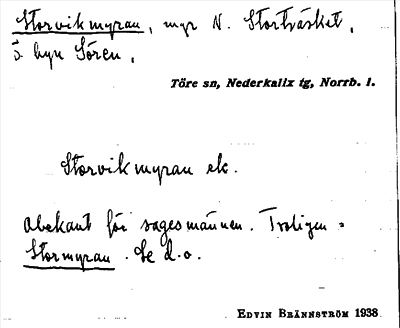 Storvikmyran, myr N. Storträsket,
S byn Sören.
Töre sn, Nederkalix tg, Norrb. l.
Storvikmyran ek.
Obekant för sagesmännen. Troligen =
Stormyran. Se d.o.
EDVIN BRÄNNSTRÖM 1938